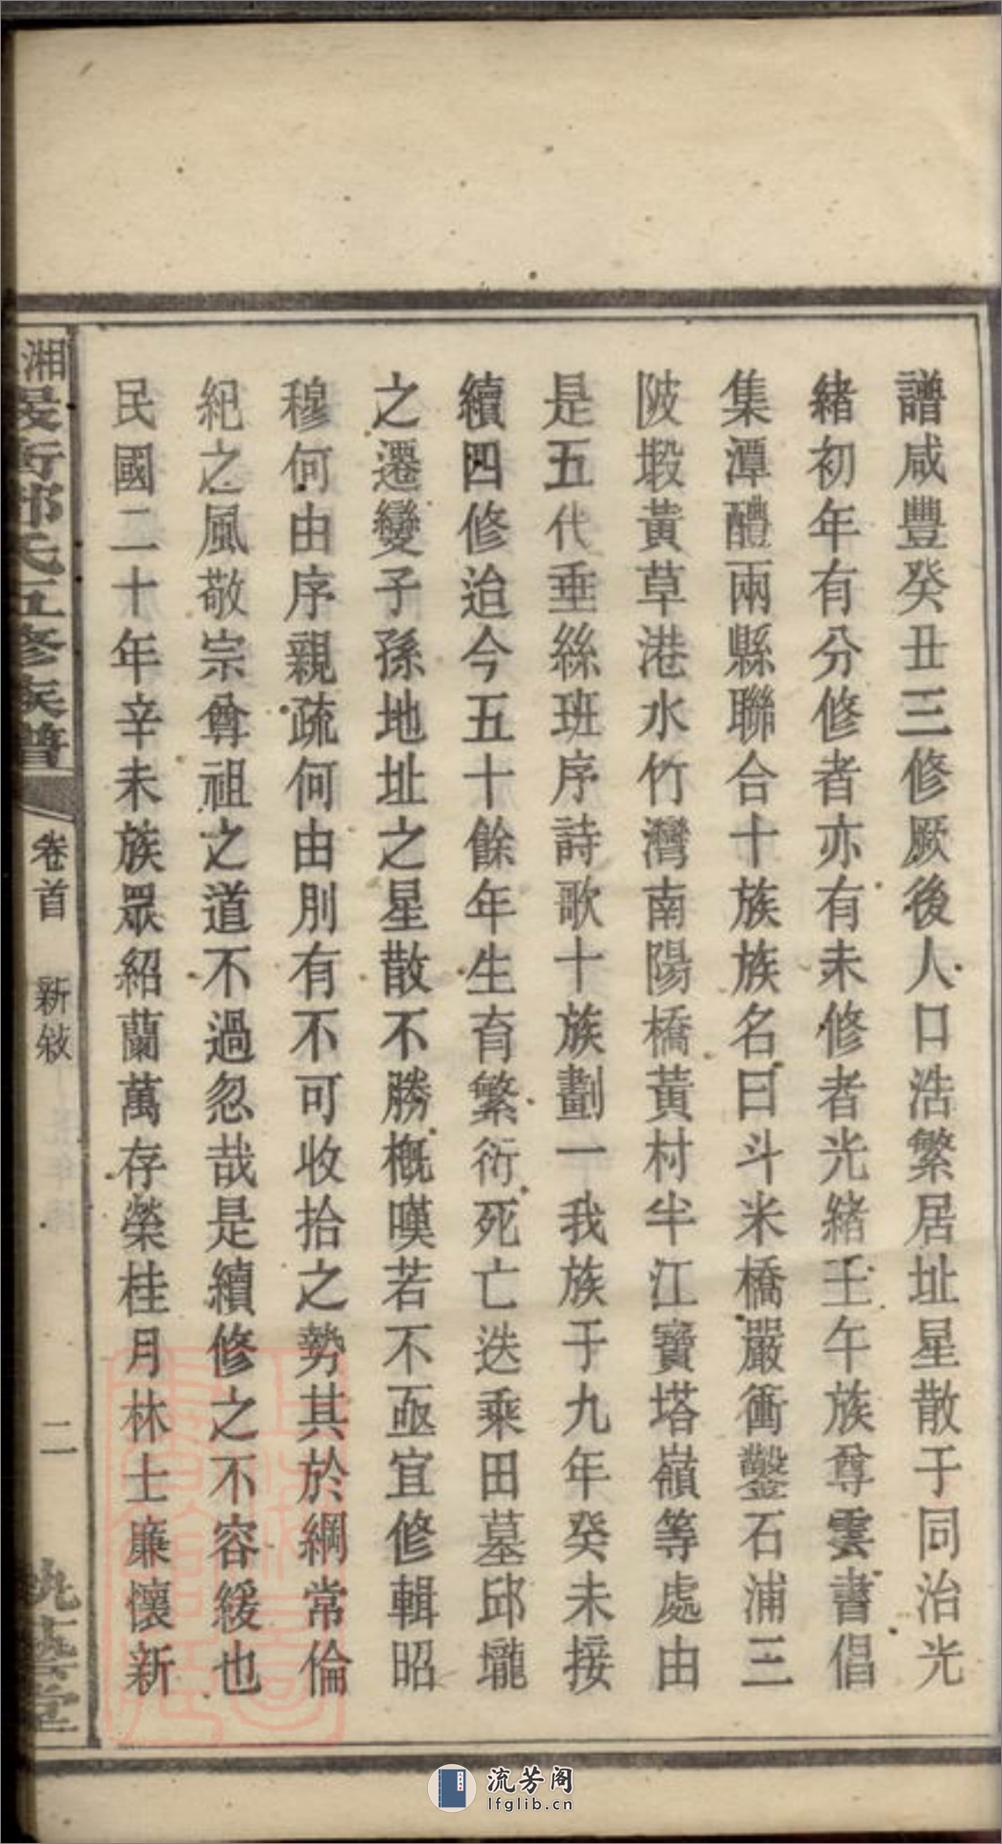 譜咸豐癸丑三修厥後人口浩繁居址星散于同治光
緒初年有分修者亦有未修者光緒王午族尊雲書倡
集潭醴兩縣聯合十族族名曰斗米橋嚴衝鑿石浦三
陂塅黃草港水竹灣南陽橋黃村半江寶塔嶺等處由
是五代垂絲班序詩歌十族劃一我族于九年癸未接
續四修迨今五十餘年生育繁衍死亡迭乘田墓邱壠
之遷變子孫地址之星散不勝概嘆若不亟宜修輯昭
穆何由序親疏何由別有不可收拾之勢其於綱常倫
紀之風敬宗尊祖之道不過忽哉是續修之不容緩也
民國二十年辛未族眾紹蘭萬存榮桂月林士廉懷新
湘衡氏五修族譜
卷首
新敘
二
堂
流芳阁
lfglib.cn